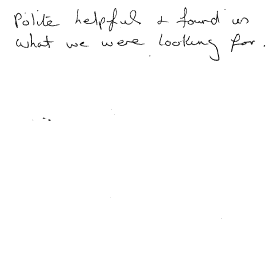 Polite helpful & found us
what we were looking for.